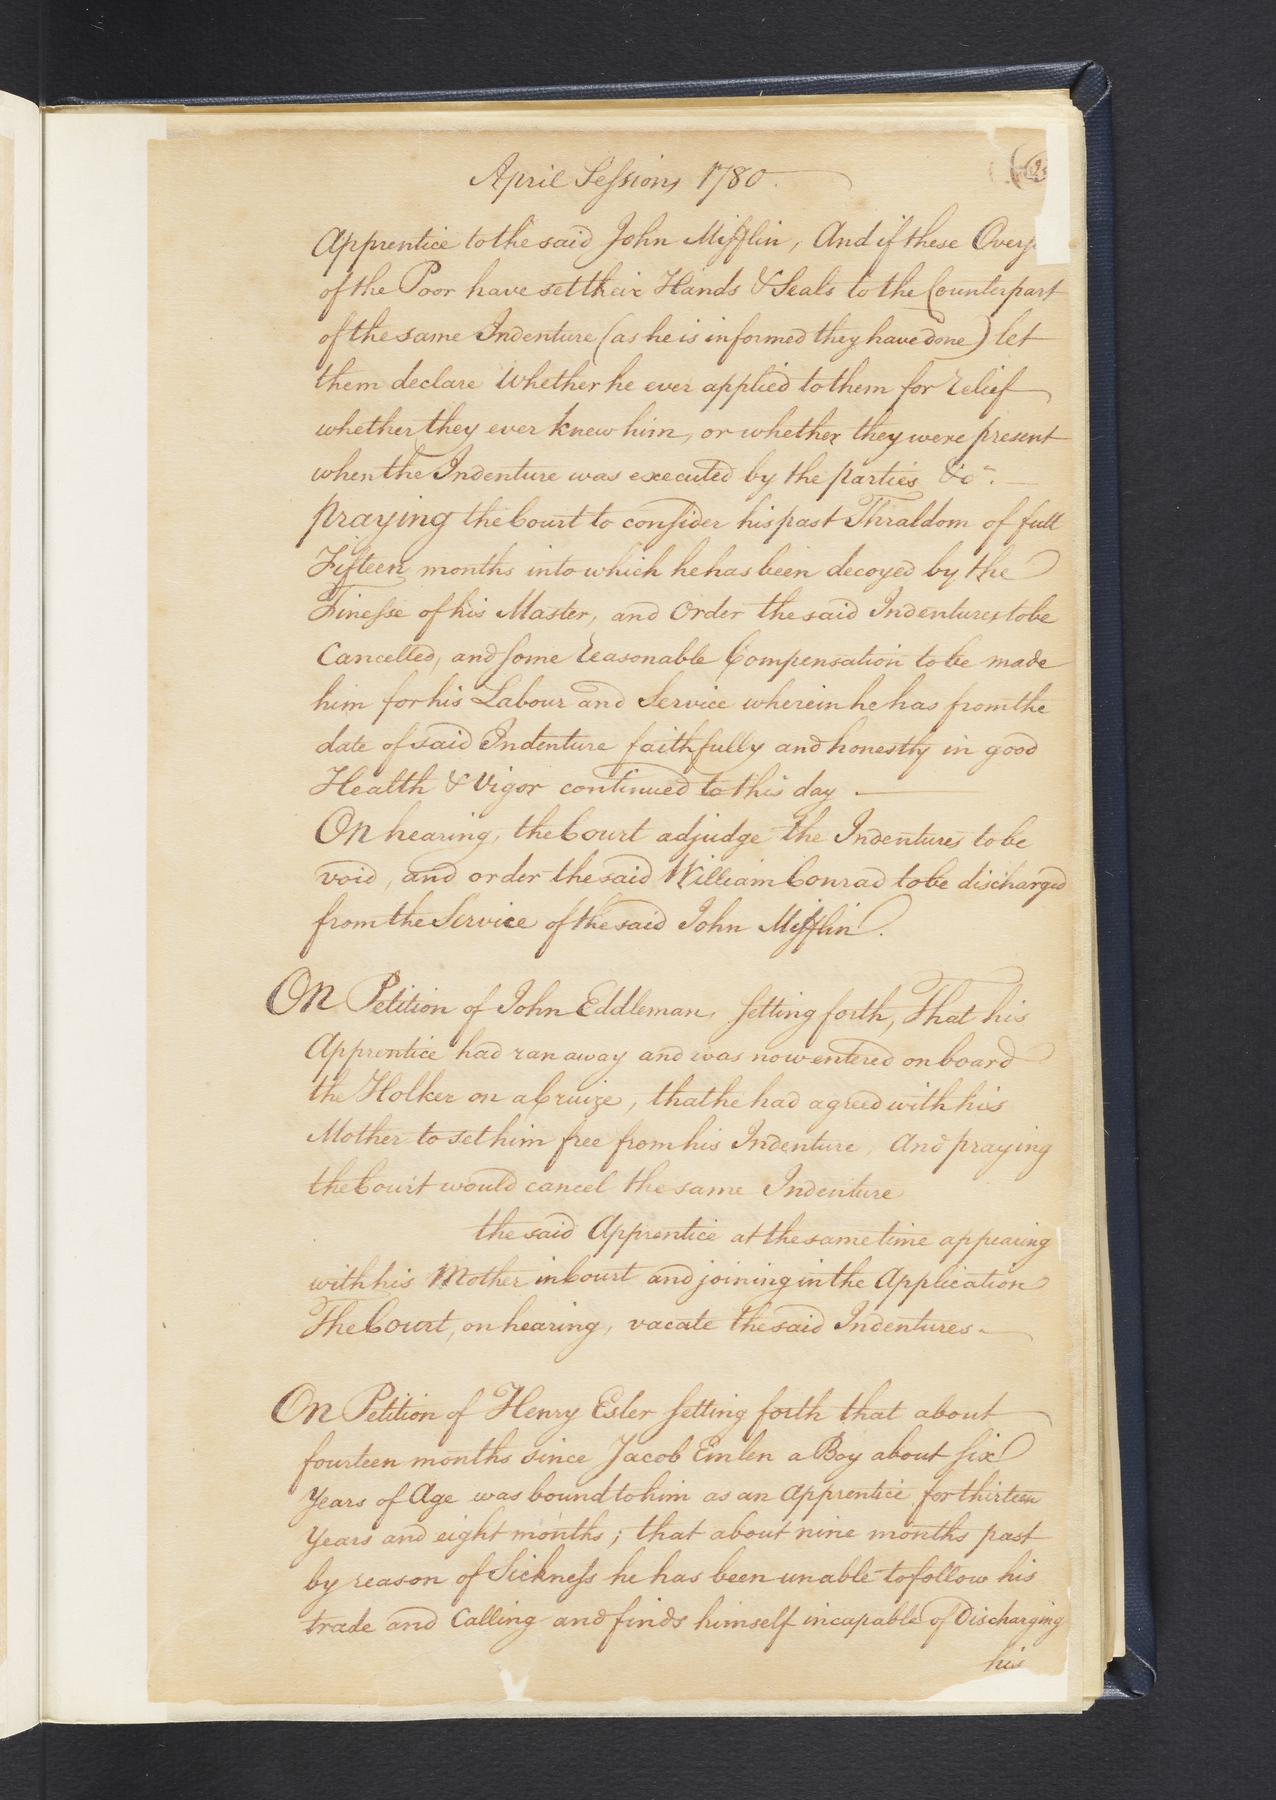 April Sessions 1780.
Apprentice to the said John Mifflin, And if these Overs
of the Poor have set their Hands & Seals to the Counterpart
of the same Indenture (as he is informed they have done) let
them declare whether he ever applied to them for relief
whether they ever knew him, or whether they were present
when the Indenture was executed by the parties &c.
praying the Court to consider his past Thraldom of full
Fifteen months into which he has been decoyed by the
Finesse of his Master, and Order the said Indentures to be
Cancelled, and some reasonable Compensation to be made
him for his Labour and Service wherein he has from the
date of said Indenture faithfully and honestly in good
Health & Vigor continued to this day.
On hearing, the Court adjudge the Indentures to be
void, and order the said William Conrad to be discharged
from the Service of the said John Mifflin.
On Petition of John Eddleman, setting forth, That his
Apprentice had ran away and was now entered on board
the Holker on a Cruize, that he had agreed with his
Mother to set him free from his Indenture, And praying
the Court would cancel the same Indenture
the said Apprentice at the same time appearing
with his Mother in Court and joining in the Application
The Court, on hearing, vacate the said Indentures.
On Petition of Henry Esler setting forth that about
fourteen months since Jacob Emlen a Boy about six
Years of Age was bound to him as an Apprentice for thirteen
Years and eight months; that about nine months past
by reason of Sickness he has been unable to follow his
trade and Calling and finds himself incapable of Discharging
his